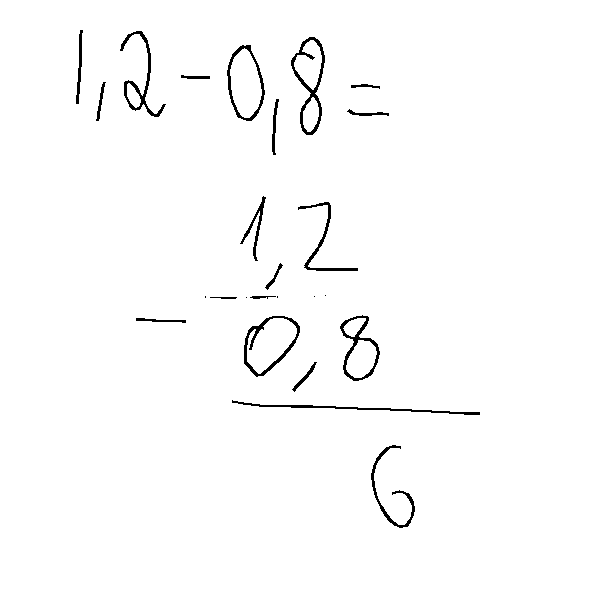 1,2-0,8=
1,2
-
0,8
6